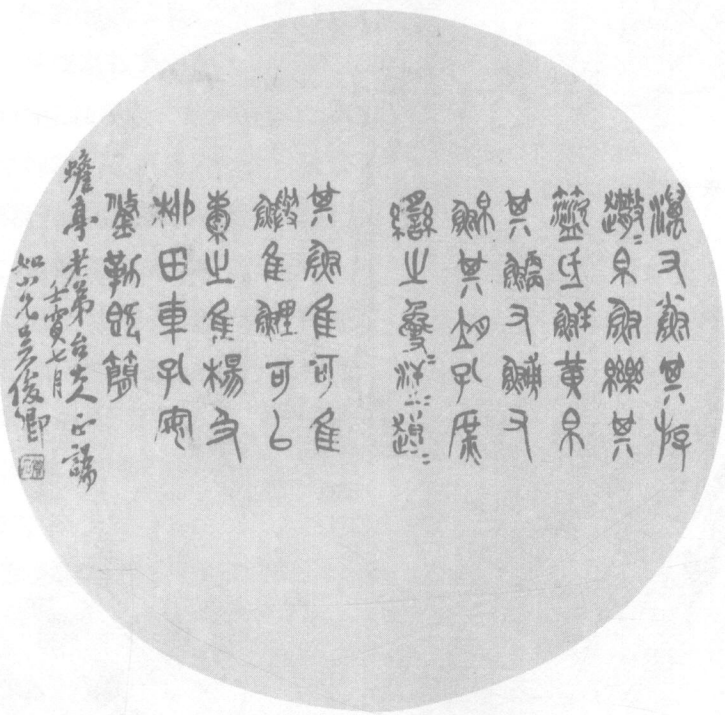 澫又小魚其斿
趣=帛魚皪其
籃氐鮮黃帛
其鯾又䱉又
䰽其胡孔庶
臠之夐=汗=趨=
其魚隹可隹
鱮隹鯉可以
橐之隹楊及
柳田車孔安
鋚勒既簡
蟾亭老弟台大人正譌
壬寅七月
如小兄吳俊卿